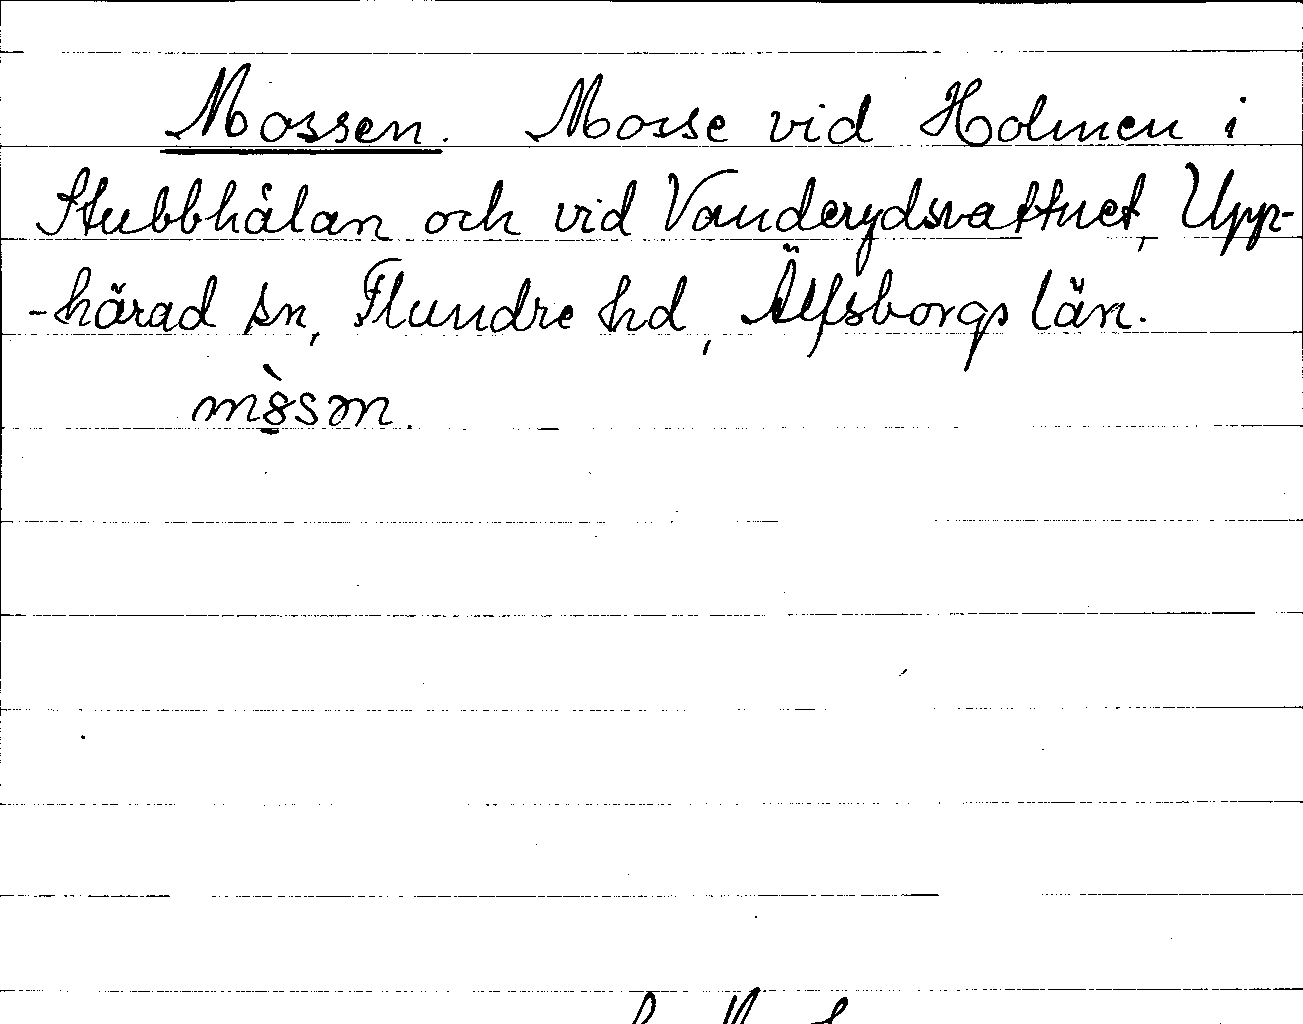 Mossen. Mosse vid Holmen i
Stubbhålan och vid Vanderydsvattnet, Upp-
-härad sn, Flundre hd, Älfsborgs län.